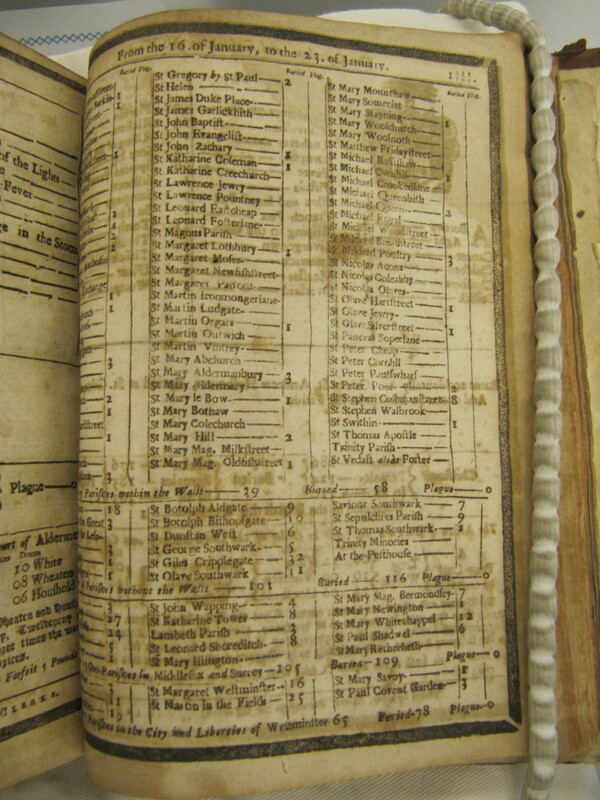 of the Lights
Fever
ge in the Stom
Plague—0
ourt of Alderme
10 White
08 Wheaten
06 Houshold
From the 16. of January, to the 23. of January.
Buried Plag.
St Gregory by St Paul— 2
St Helen
St James Duke Place
St James Garlickhith
St John Baptist
St John Evangelist
St John Zachary
St Katharine Coleman— 1
St Katharine Creechurch— 1
St Lawrence Jewry
St Lawrence Pountney
St Leonard Eastcheap
St Leonard Fosterlane
St Magnus Parish
St Margaret Lothbury— 1
St Margaret Moses
St Margaret Newfishstreet
St Margaret Pattons
St Martin Ironmongerlane
St Martin Ludgate
St Martin Orgars— 1
St Martin Outwich
St Martin Vintrey
St Mary Abchurch
St Mary Aldermanbury— 3
St Mary Aldermary
St Mary le Bow— 1
St Mary Bothaw
St Mary Colechurch
St Mary Hill— 2
St Mary Mag. Milkstreet
St Mary Mag. Oldfishstreet 1
Buried Plag.
St Mary Mounthaw
St Mary Somerset
St Mary Stayning
St Mary Woolchurch— 1
St Mary Woolnoth
St Matthew Fridaystreet
St Michael Bassishaw
St Michael Cornhil— 1
St Michael Crookedlane
St Michael Queenhith
St Michael Quern— 2
St Michael Royal
St Michael Woodstreet
St Mildred Breadstreet
St Mildred Poultry— 3
St Nicolas Acons
St Nicolas Coleabby
St Nicolas Olaves
St Olave Hartstreet— 1
St Olave Jewry
St Olave Silverstreet— 1
St Pancras Soperlane
St Peter Cheap
St Peter Cornhil
St Peter Paulswharf
St Peter Poor— 2
St Stephen Colemanstreet 8
St Stephen Walbrook
St Swithin— 1
St Thomas Apostle
Trinity Parish
St Vedast alias Foster
Buried Plag.
Parishes within the Walls— 29 Buried— 58 Plague—0
St Botolph Aldgate— 9
St Botolph Bishopsgate— 10
St Dunstan West— 6
St George Southwark— 5
St Giles Cripplegate— 32
St Olave Southwark
Saviour Southwark— 7
St Sepulchres Parish— 9
St Thomas Southwark— 1
Trinity Minories
At the Pesthouse
Parishes without the Walls— 101 Buried 116 Plague—0
St John Wapping— 4
St Katharine Tower— 8
Lambeth Parish— 2
St Leonard Shoreditch— 8
St Mary Islington
St Mary Mag. Bermondsey— 7
St Mary Newington— 1
St Mary Whitechappel— 12
St Paul Shadwel— 6
St Mary Retherheth
Out-Parishes in Middlesex and Surrey— 105 Buried—109 Plague—0
St Margaret Westminster— 16
St Martin in the Fields— 25
St Mary Savoy— 1
St Paul Covent Garden— 3
Parishes in the City and Liberties of Westminster 65 Buried-78 Plague-0